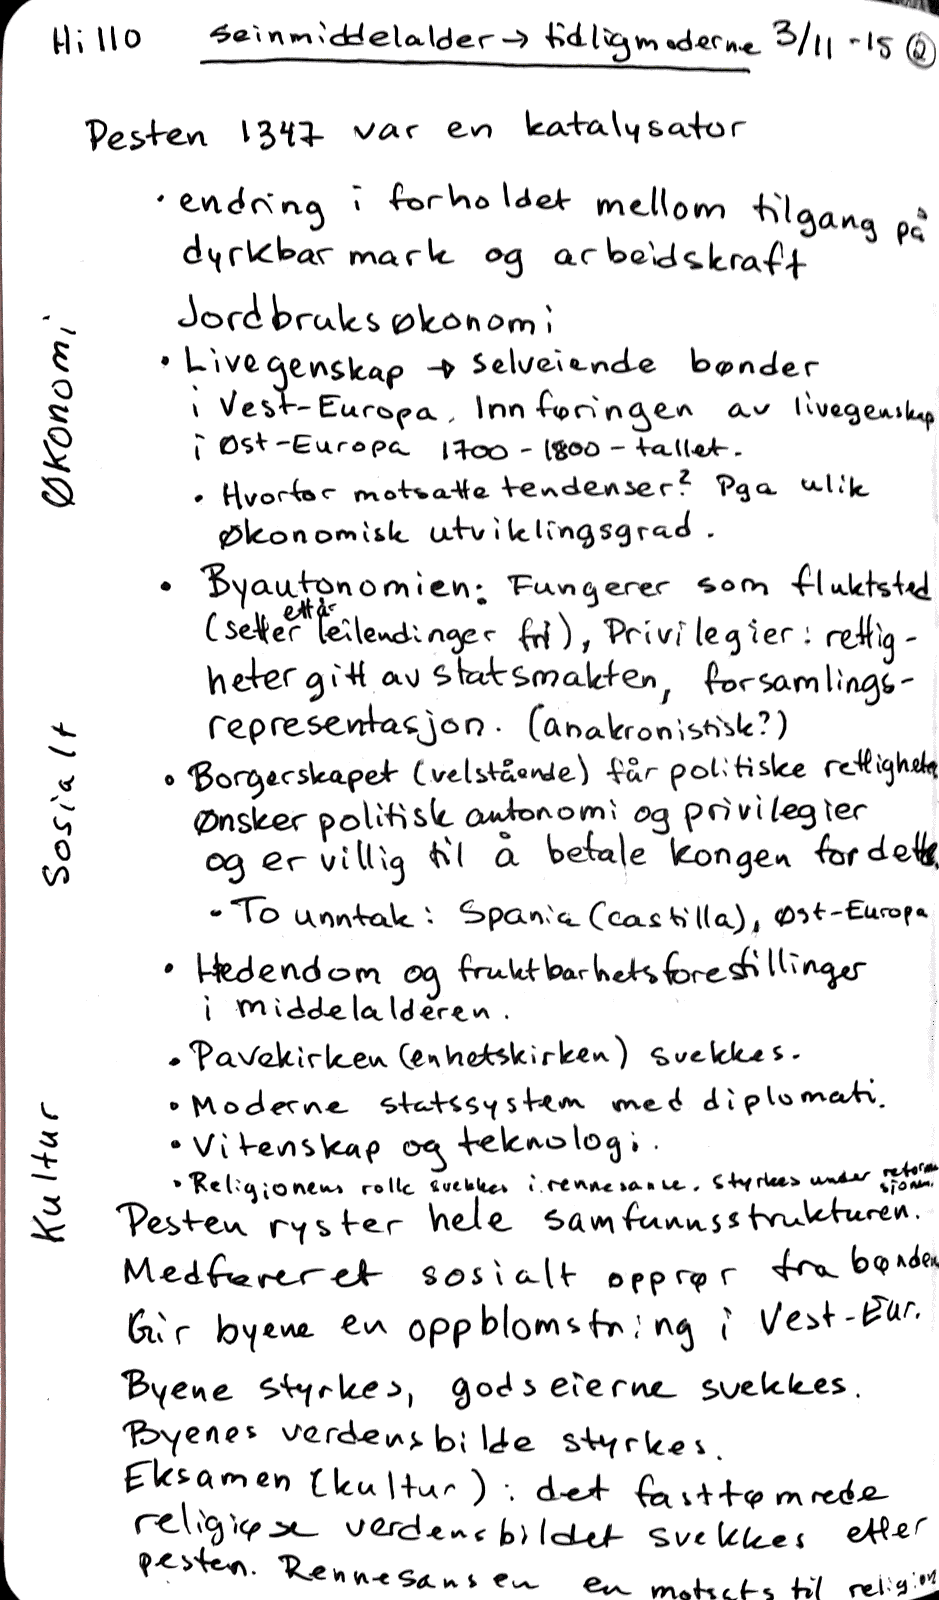 Hi 110 seinmiddelalder → tidligmoderne 3/11-15 2
Pesten 1347 var en katalysator
• endring i forholdet mellom tilgang på
dyrkbar mark og arbeidskraft
Jordbruksøkonomi
Økonomi
• Livegenskap → selveiende bønder
i Vest-Europa. Innføringen av livegenskap
i Øst-Europa 1700-1800-tallet.
• Hvorfor motsatte tendenser? Pga ulik
økonomisk utviklingsgrad.
• Byautonomien: Fungerer som fluktsted
ett år
(setter leilendinger fri), Privilegier: rettig-
heter gitt av statsmakten, forsamlings-
representasjon. (anakronistisk?)
Sosialt
• Borgerskapet (velstående) får politiske rettigheter
Ønsker politisk autonomi og privilegier
og er villig til å betale kongen for dette.
• To unntak: Spania (Castilla), Øst-Europa
• Hedendom og fruktbarhetsforestillinger
i middelalderen.
• Pavekirken (enhetskirken) svekkes.
Kultur
• Moderne statssystem med diplomati.
• Vitenskap og teknologi.
• Religionens rolle svekkes i rennesance. Styrkes under reforma
sjonen.
Pesten ryster hele samfunnsstrukturen.
Medfører et sosialt opprør fra bønder
Gir byene en oppblomstring i Vest-Eur.
Byene styrkes, godseierne svekkes.
Byenes verdensbilde styrkes.
Eksamen (kultur): det fasttømrede
religiøse verdensbildet svekkes etter
pesten. Rennesansen en motsats til religion